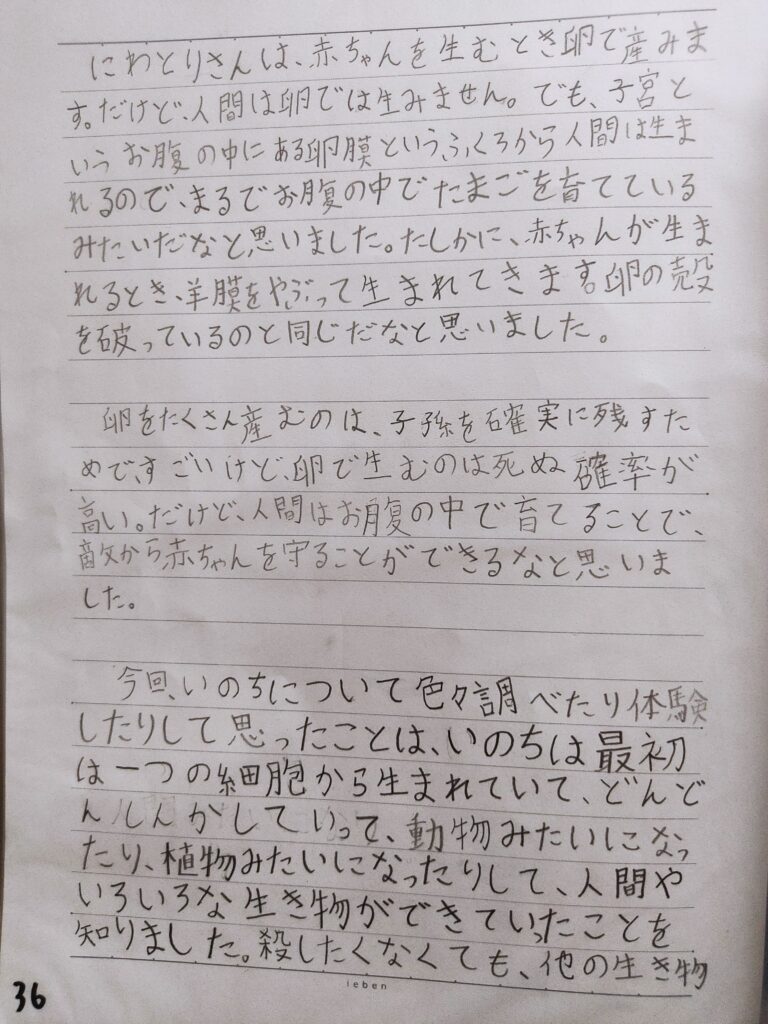 にわとりさんは、赤ちゃんを生むとき卵で産みま
す。だけど、人間は卵では生みません。でも、子宮と
いうお腹の中にある卵膜というふくろから人間は生ま
れるので、まるでお腹の中でたまごを育てている
みたいだなと思いました。たしかに、赤ちゃんが生ま
れるとき、羊膜をやぶって生まれてきます。卵の殻
を破っているのと同じだなと思いました。
卵をたくさん産むのは、子孫を確実に残すた
めで、すごいけど、卵で生むのは死ぬ確率が
高い。だけど、人間はお腹の中で育てることで、
敵から赤ちゃんを守ることができるなと思いま
した。
今回、いのちについて色々調べたり体験
したりして思ったことは、いのちは最初
は一つの細胞から生まれていて、どんど
んしんかしていって、動物みたいになっ
たり、植物みたいになったりして、人間や
いろいろな生き物ができていったことを
知りました。殺したくなくても、他の生き物
leben
36